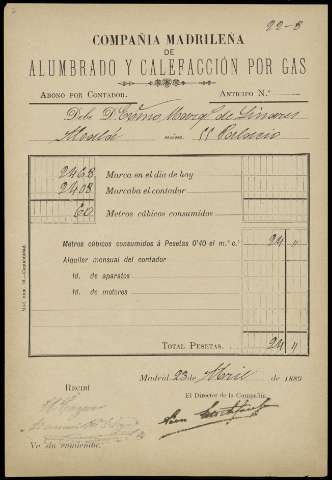 22-8
COMPAÑIA MADRILEÑA
DE
ALUMBRADO Y CALEFACCIÓN POR GAS
ABONO POR CONTADOR. ANTICIPO N.º
Debe D. Excmo. Marq.s de Linares
Alcalá núm. Palacio
2468 Marca en el día de hoy
2408 Marcaba el contador
60 Metros cúbicos consumidos
Metros cúbicos consumidos á Pesetas 0'40 el m.³ c.º 24 "
Alquiler mensual del contador
Id. de aparatos
Id. de motores
TOTAL PESETAS. 24 "
Madrid 23 de Abril de 1889
RECIBÍ
El Director de la Compañía,